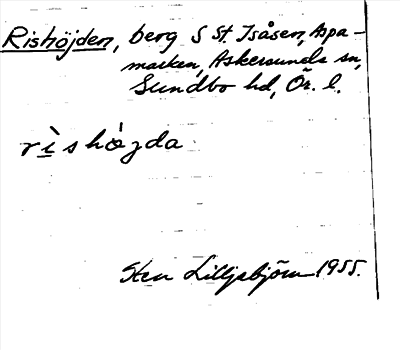 Rishöjden, berg S St. Isåsen, Aspa-
marken, Askersunds sn,
Sundbo hd, Ör. l.
rìshȯ̀jda
Sten Lilljebjörn 1955.